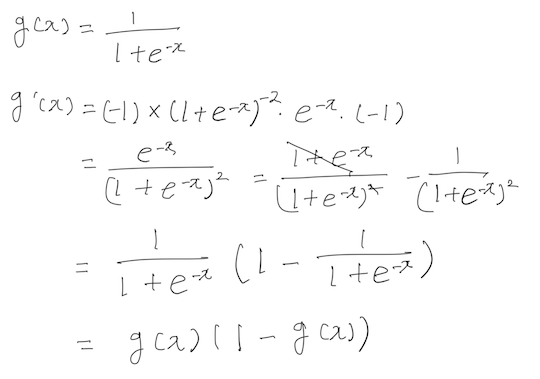 g(x) = 1 / (1 + e^-x)
g'(x) = (-1) × (1 + e^-x)^-2 · e^-x · (-1)
= e^-x / (1 + e^-x)^2 = (1 + e^-x) / (1 + e^-x)^2 - 1 / (1 + e^-x)^2
= 1 / (1 + e^-x) (1 - 1 / (1 + e^-x))
= g(x) (1 - g(x))